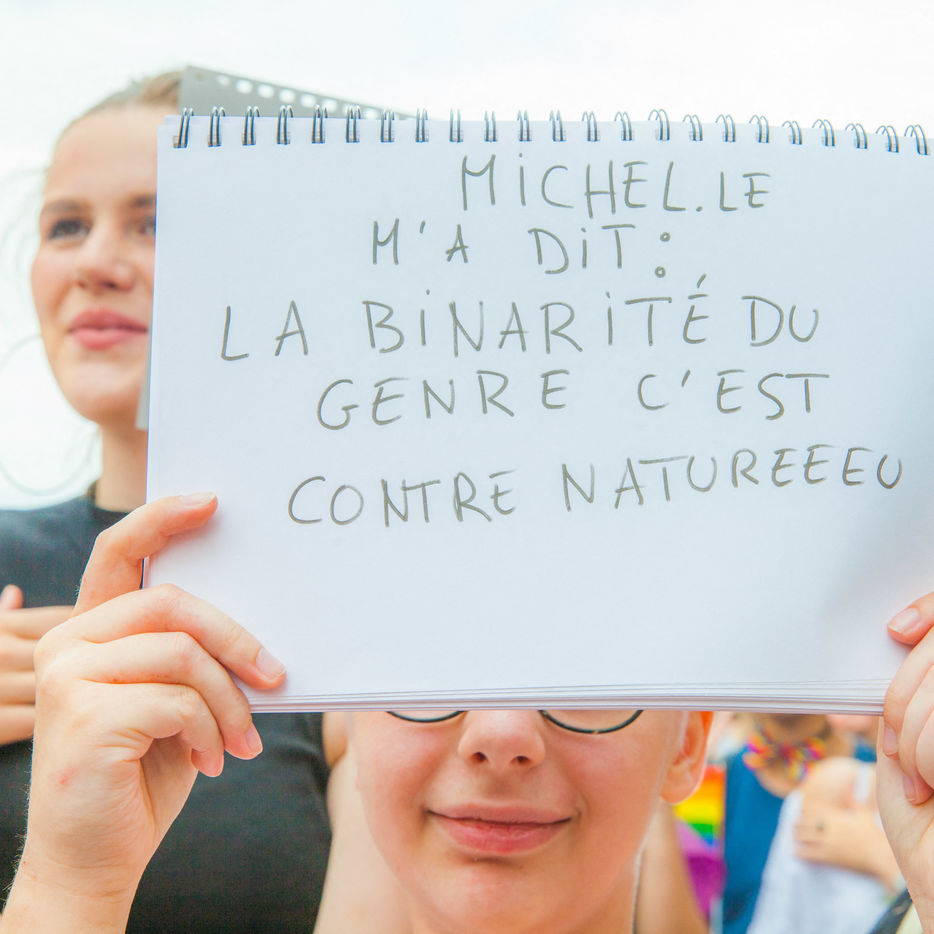 MiCHEL.LE
M'A DiT :
LA BiNARiTÉ DU
GENRE C'EST
CONTRE NATUREEEU